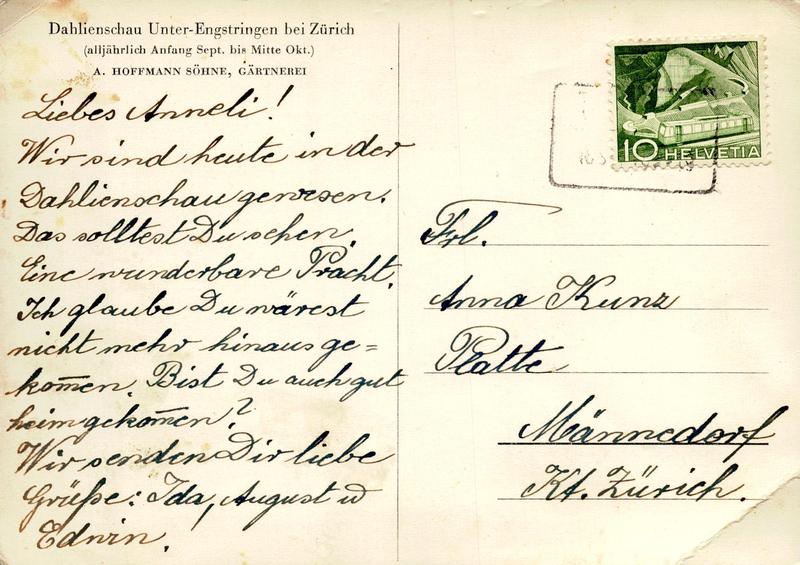 Dahlienschau Unter-Engstringen bei Zürich
(alljährlich Anfang Sept. bis Mitte Okt.)
A. HOFFMANN SÖHNE, GÄRTNEREI
Liebes Anneli!
Wir sind heute in der
Dahlienschau gewesen.
Das solltest Du sehen.
Eine wunderbare Pracht.
Ich glaube Du wärest
nicht mehr hinaus ge=
kom̄en. Bist Du auch gut
heimgekom̄en?
Wir senden Dir liebe
Grüße: Ida, August u
Edwin.
10 HELVETIA
Frl.
Anna Kunz
Platte
Männedorf
Kt. Zürich.